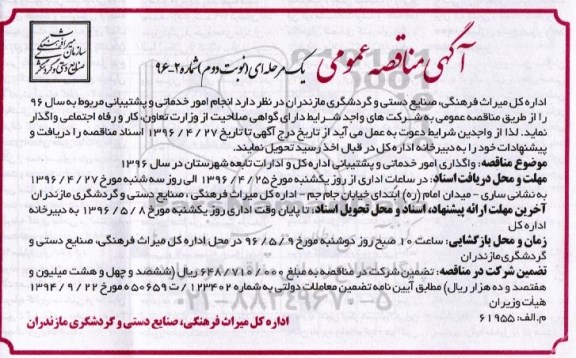 سازمان میراث فرهنگی
صنایع دستی و گردشگری
آگهی مناقصه عمومی یک مرحله ای (نوبت دوم) شماره ۲-۹۶
اداره کل میراث فرهنگی، صنایع دستی و گردشگری مازندران در نظر دارد انجام امور خدماتی و پشتیبانی مربوط به سال ۹۶
را از طریق مناقصه عمومی به شرکت های واجد شرایط دارای گواهی صلاحیت از وزارت تعاون، کار و رفاه اجتماعی واگذار
نماید. لذا از واجدین شرایط دعوت به عمل می آید از تاریخ درج آگهی تا تاریخ ۱۳۹۶/۴/۲۷ اسناد مناقصه را دریافت و
پیشنهادات خود را به دبیرخانه اداره کل در قبال اخذ رسید تحویل نمایند.
موضوع مناقصه: واگذاری امور خدماتی و پشتیبانی اداره کل و ادارات تابعه شهرستان در سال ۱۳۹۶
مهلت و محل دریافت اسناد: در ساعات اداری از روز یکشنبه مورخ ۱۳۹۶/۴/۲۵ الی روز سه شنبه مورخ ۱۳۹۶/۴/۲۷
به نشانی ساری - میدان امام (ره) ابتدای خیابان جام جم - اداره کل میراث فرهنگی، صنایع دستی و گردشگری مازندران
آخرین مهلت ارائه پیشنهاد، اسناد و محل تحویل اسناد: تا پایان وقت اداری روز یکشنبه مورخ ۱۳۹۶/۵/۸ به دبیرخانه
اداره کل
زمان و محل بازگشایی: ساعت ۱۰ صبح روز دوشنبه مورخ ۹۶/۵/۹ در محل اداره کل میراث فرهنگی، صنایع دستی و
گردشگری مازندران
تضمین شرکت در مناقصه: تضمین شرکت در مناقصه به مبلغ ۶۴۸/۷۱۰/۰۰۰ ریال (ششصد و چهل و هشت میلیون و
هفتصد و ده هزار ریال) مطابق آیین نامه تضمین معاملات دولتی به شماره ۱۲۳۴۰۲/ت ۵۰۶۵۹ مورخ ۱۳۹۴/۹/۲۲
هیأت وزیران
م.الف: ۶۱۹۵۵
اداره کل میراث فرهنگی، صنایع دستی و گردشگری مازندران
۰۲۱-۸۸۳۴۹۶۷۰-۵